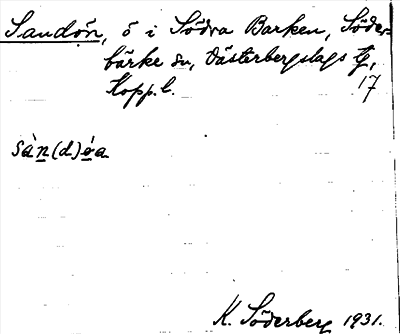 Sandön, ö i Södra Barken, Söder-
bärke sn, Västerbergslags tg,
Kopp.l. 17
sàn(d)ö́a
K. Söderberg 1931.